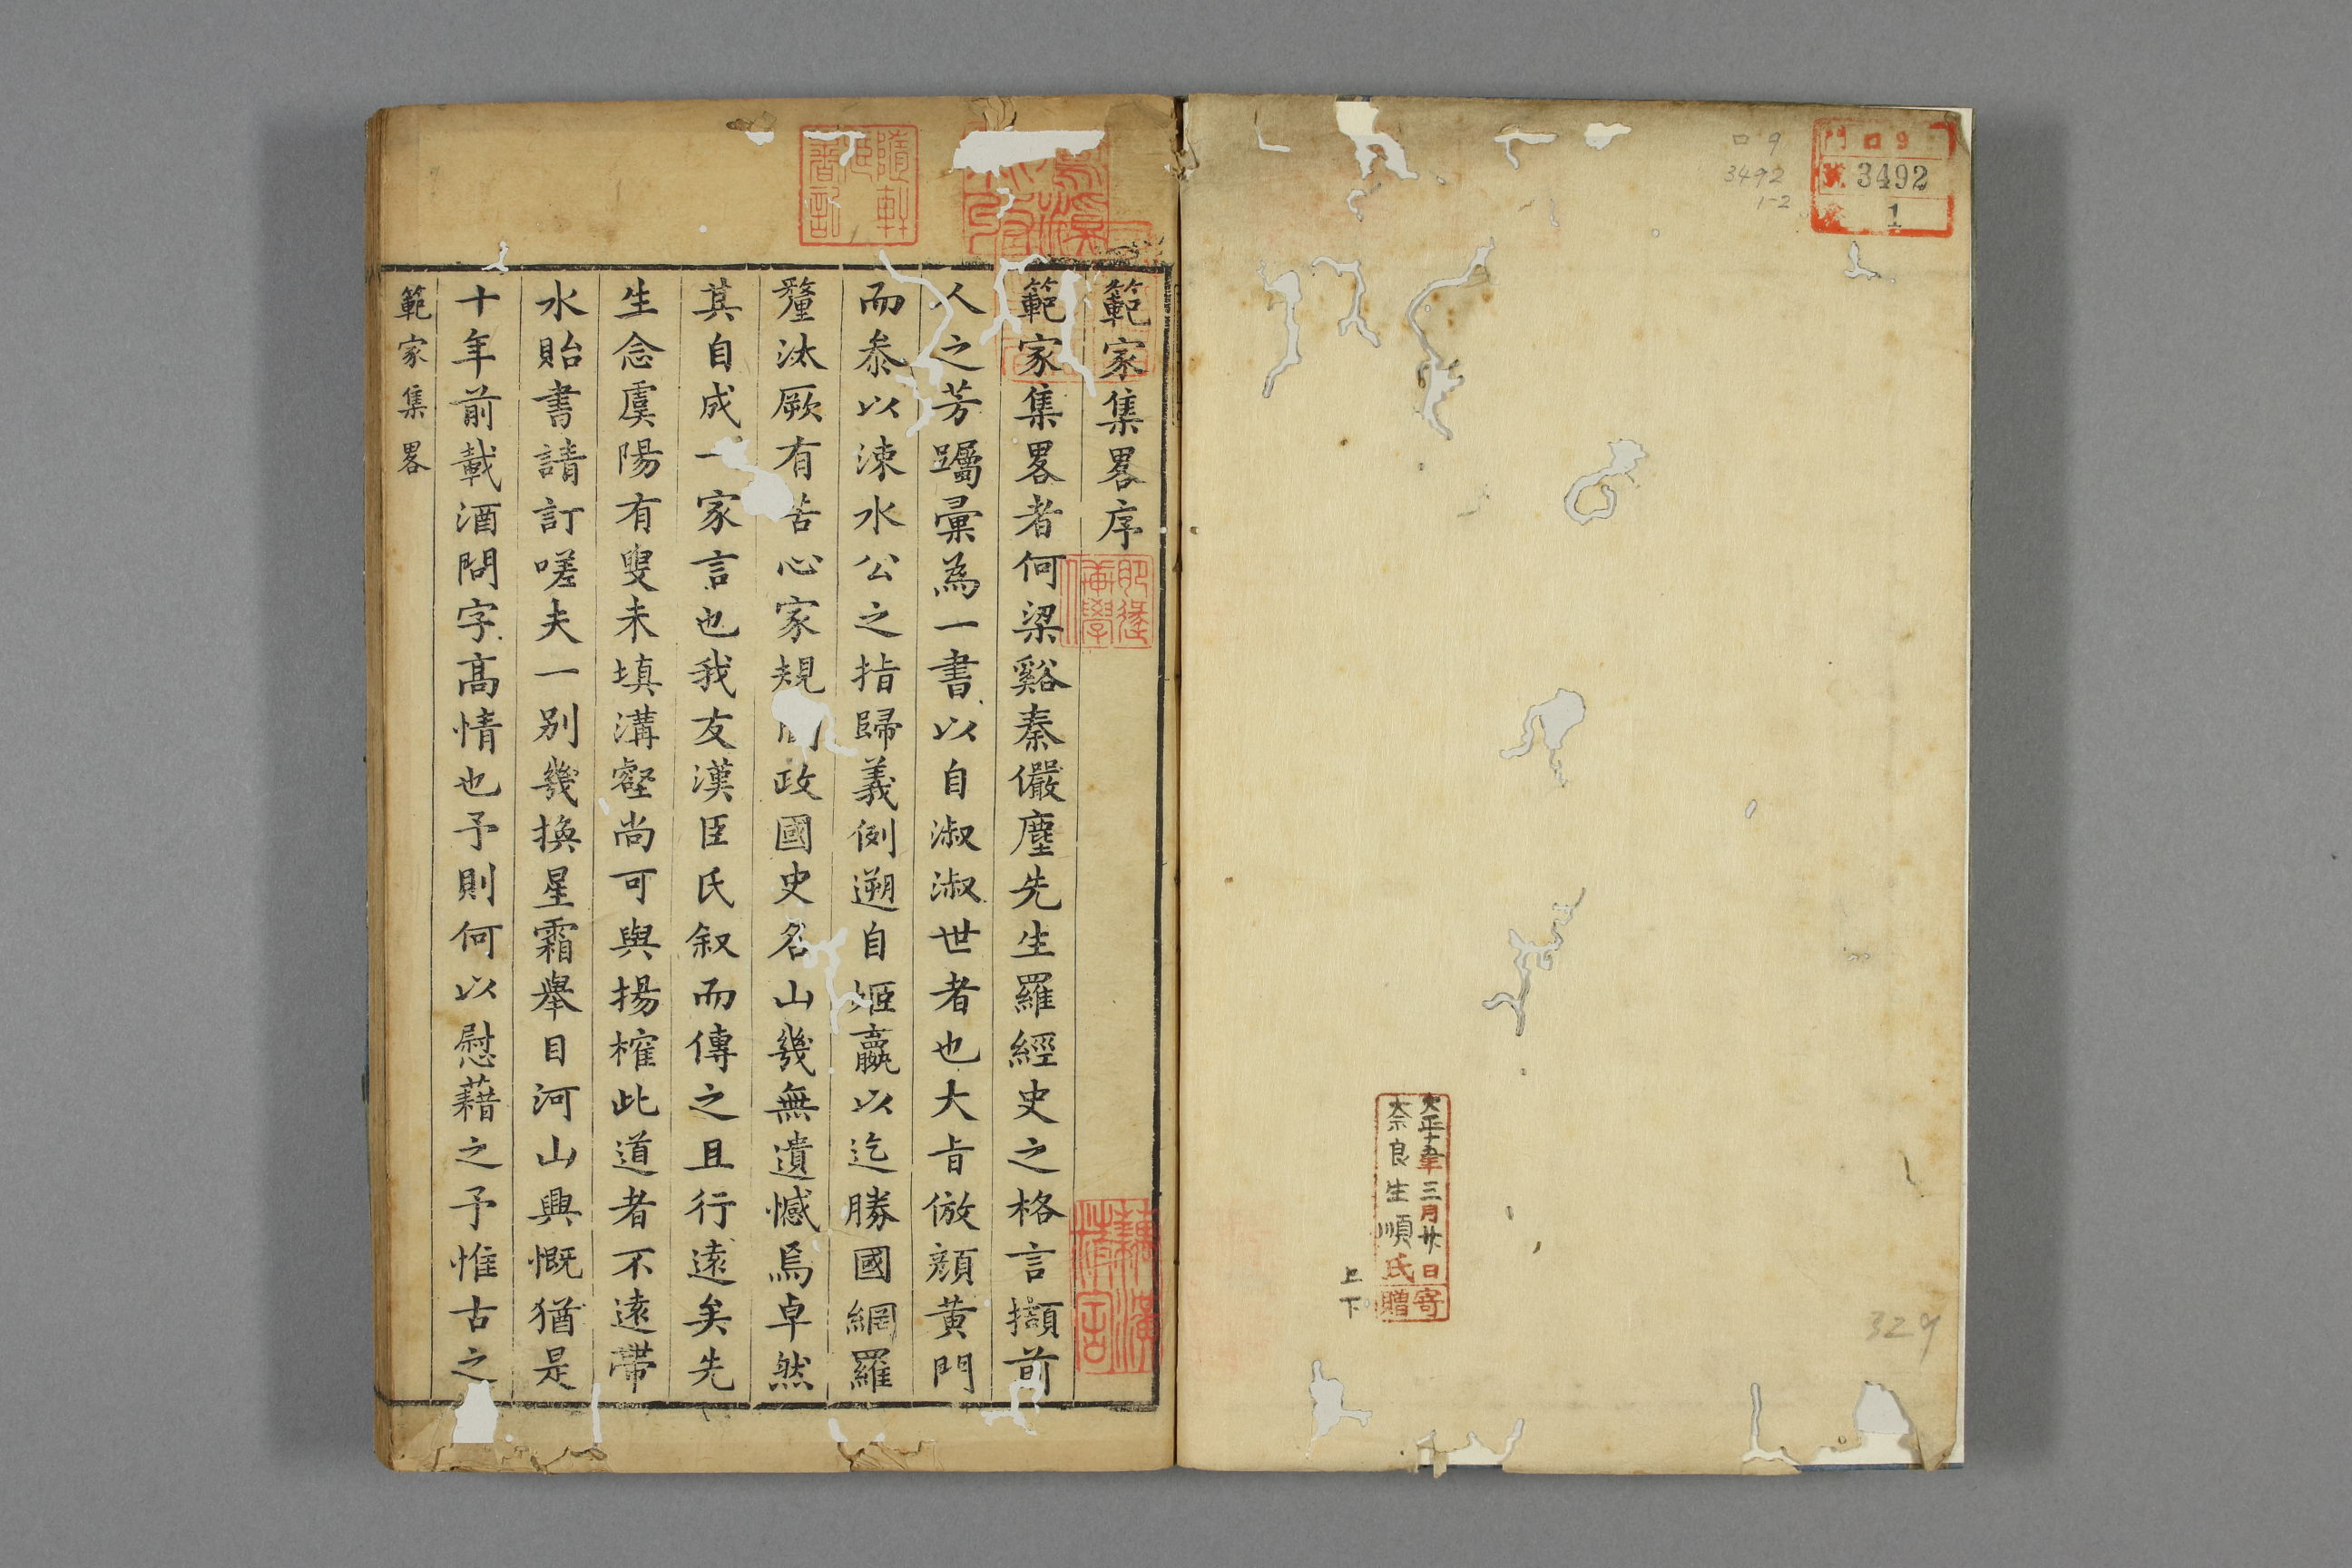 門 ロ 9
號 3492
卷 1
ロ9
3492
1-2
大正十五年三月廿日寄
奈良生順氏贈
上
下
329
範家集畧序
範家集畧者何梁谿秦儼塵先生羅經史之格言擷前
人之芳躅彙為一書以自淑淑世者也大㫖倣顔黄門
而叅以涑水公之指歸義例遡自姬嬴以迄勝國網羅
釐汰厥有苦心家規政國史名山幾無遺憾焉卓然
其自成一家言也我友漢臣氏叙而傳之且行遠矣先
生念虞陽有叟未填溝壑尚可與揚榷此道者不遠帶
水貽書請訂嗟夫一别幾換星霜舉目河山興慨猶是
十年前載酒問字高情也予則何以慰藉之予惟古之
範家集畧